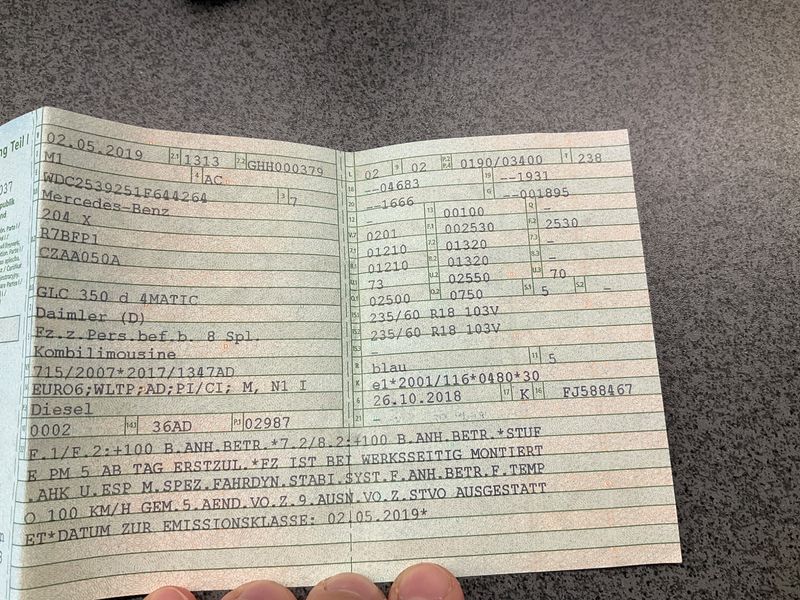 ng Teil I
02.05.2019 2.1 1313 2.2 GHH000379
M1 4 AC
WDC2539251F644264 3 7
Mercedes-Benz
204 X
R7BFP1
CZAA050A
GLC 350 d 4MATIC
Daimler (D)
Fz.z.Pers.bef.b. 8 Spl.
Kombilimousine
715/2007*2017/1347AD
EURO6;WLTP;AD;PI/CI; M, N1 I
Diesel
0002 14.1 36AD P.1 02987
L 02 9 02 P.2 P.4 0190/03400 T 238
18 --04683 19 --1931
20 --1666 G --001895
12 - 13 00100 Q -
V.7 0201 F.1 002530 F.2 2530
7.1 01210 7.2 01320 7.3 -
8.1 01210 8.2 01320 8.3 -
U.1 73 U.2 02550 U.3 70
O.1 02500 O.2 0750 S.1 5 S.2 -
15.1 235/60 R18 103V
15.2 235/60 R18 103V
15.3 -
R blau 11 5
K e1*2001/116*0480*30
6 26.10.2018 17 K 16 FJ588467
21
F.1/F.2:+100 B.ANH.BETR.*7.2/8.2:+100 B.ANH.BETR.*STUF
E PM 5 AB TAG ERSTZUL.*FZ IST BEI WERKSSEITIG MONTIERT
.AHK U.ESP M.SPEZ.FAHRDYN.STABI.SYST.F.ANH.BETR.F.TEMP
O 100 KM/H GEM.5.AEND.VO.Z.9.AUSN.VO.Z.STVO AUSGESTATT
ET*DATUM ZUR EMISSIONSKLASSE: 02.05.2019*